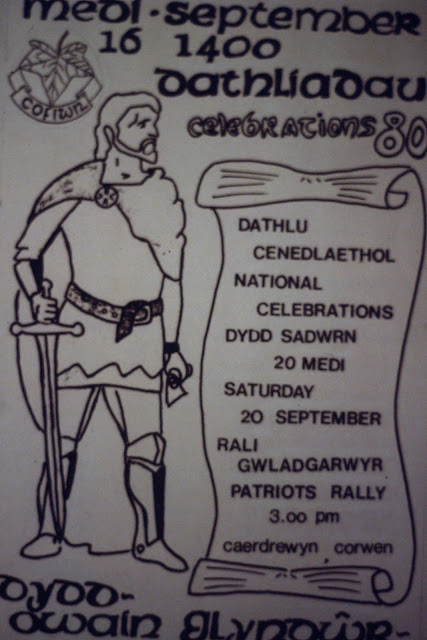 Medi · September
16 1400
Dathliadau
Celebrations 80
Cofiwn
DATHLU
CENEDLAETHOL
NATIONAL
CELEBRATIONS
DYDD SADWRN
20 MEDI
SATURDAY
20 SEPTEMBER
RALI
GWLADGARWYR
PATRIOTS RALLY
3.00 pm
caerdrewyn, corwen
Dydd-
Owain Glyndŵr-